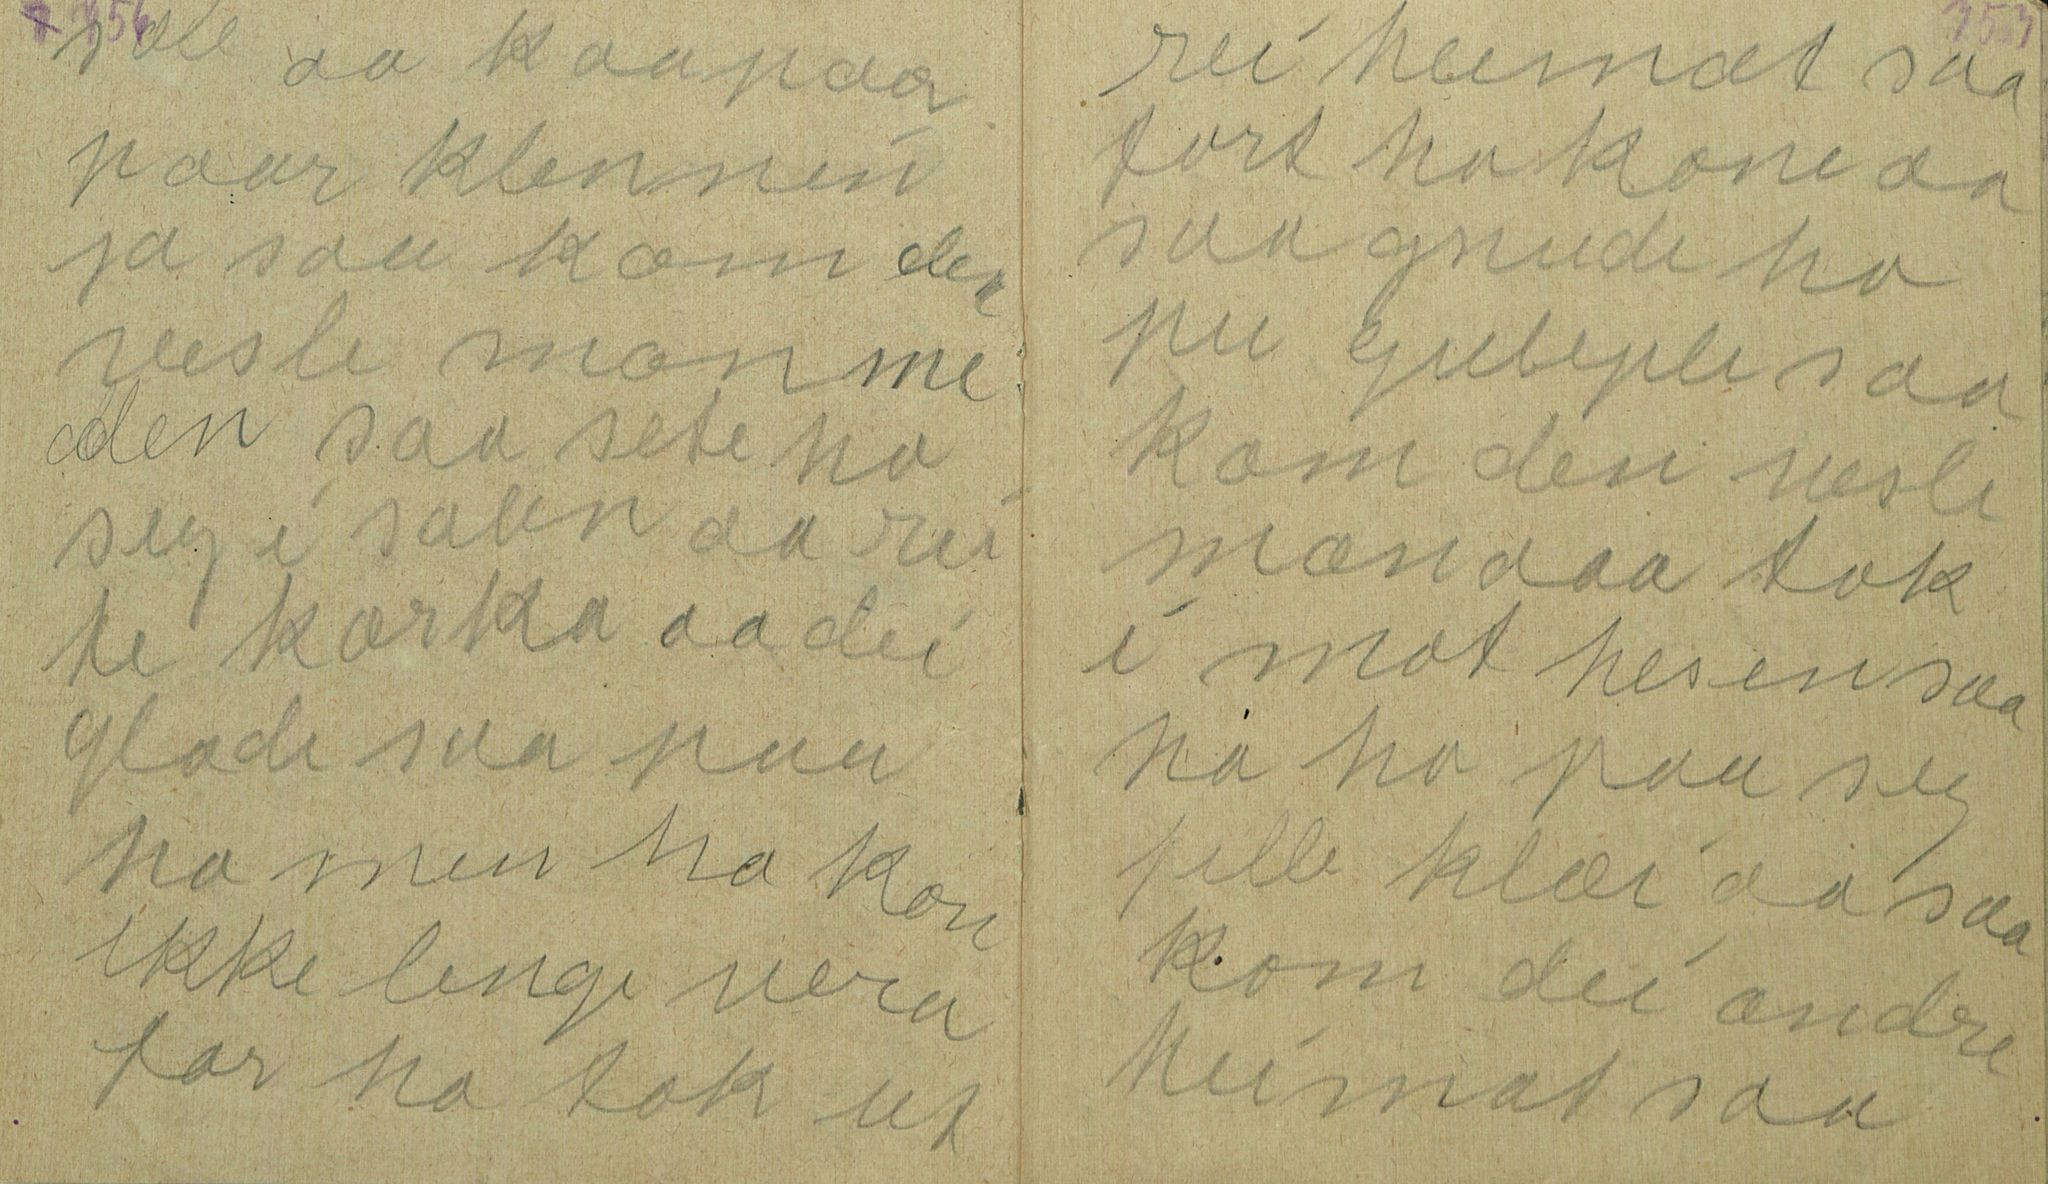 356
sale aa kaapaa
paar klennin
ja saa kom den
vesle man me
den saa sete ho
seg i salen aa rei
te karka aa dei
glade saa paa
ho men ho kon
ikke lenge vera
for ho tok ut
353
rei heimat saa
fort ho kone aa
saa gnude ho
pu gulleple saa
kom den vesle
man aa tok
i mot hesen saa
ha ho paa seg
fille klæi aa saa
kom dei andre
heimat saa